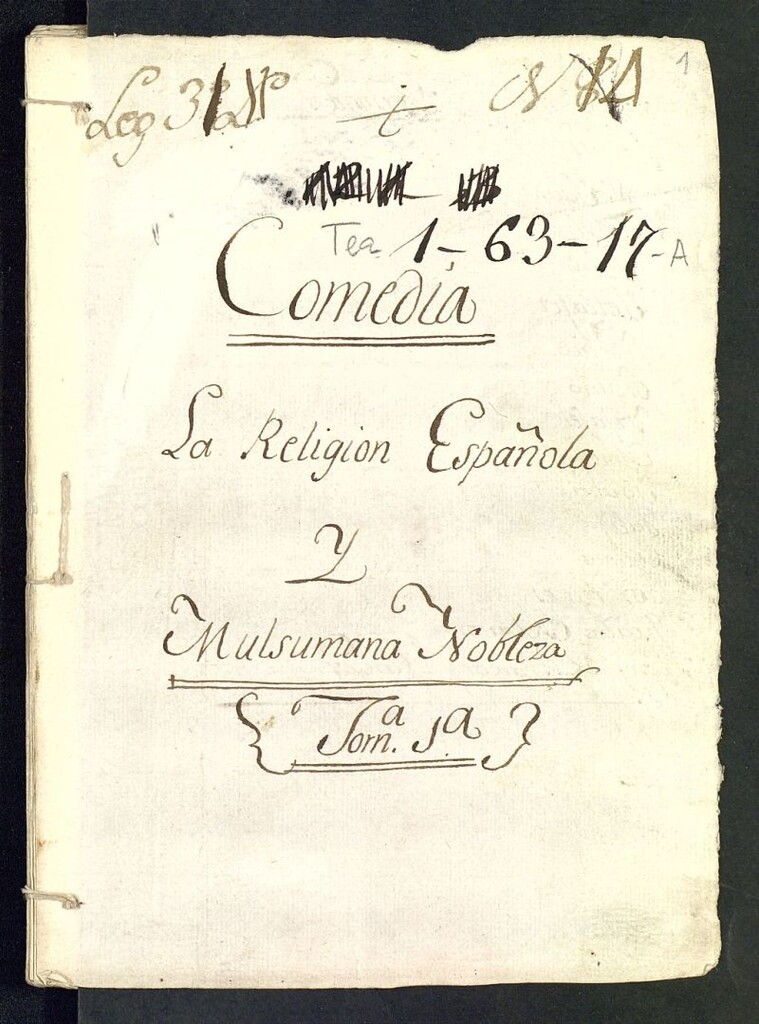 Leg 3
N
1
Tea 1-63-17-A
Comedia
La Religion Española
Y
Mulsumana Nobleza
Jorn.ª 1.ª